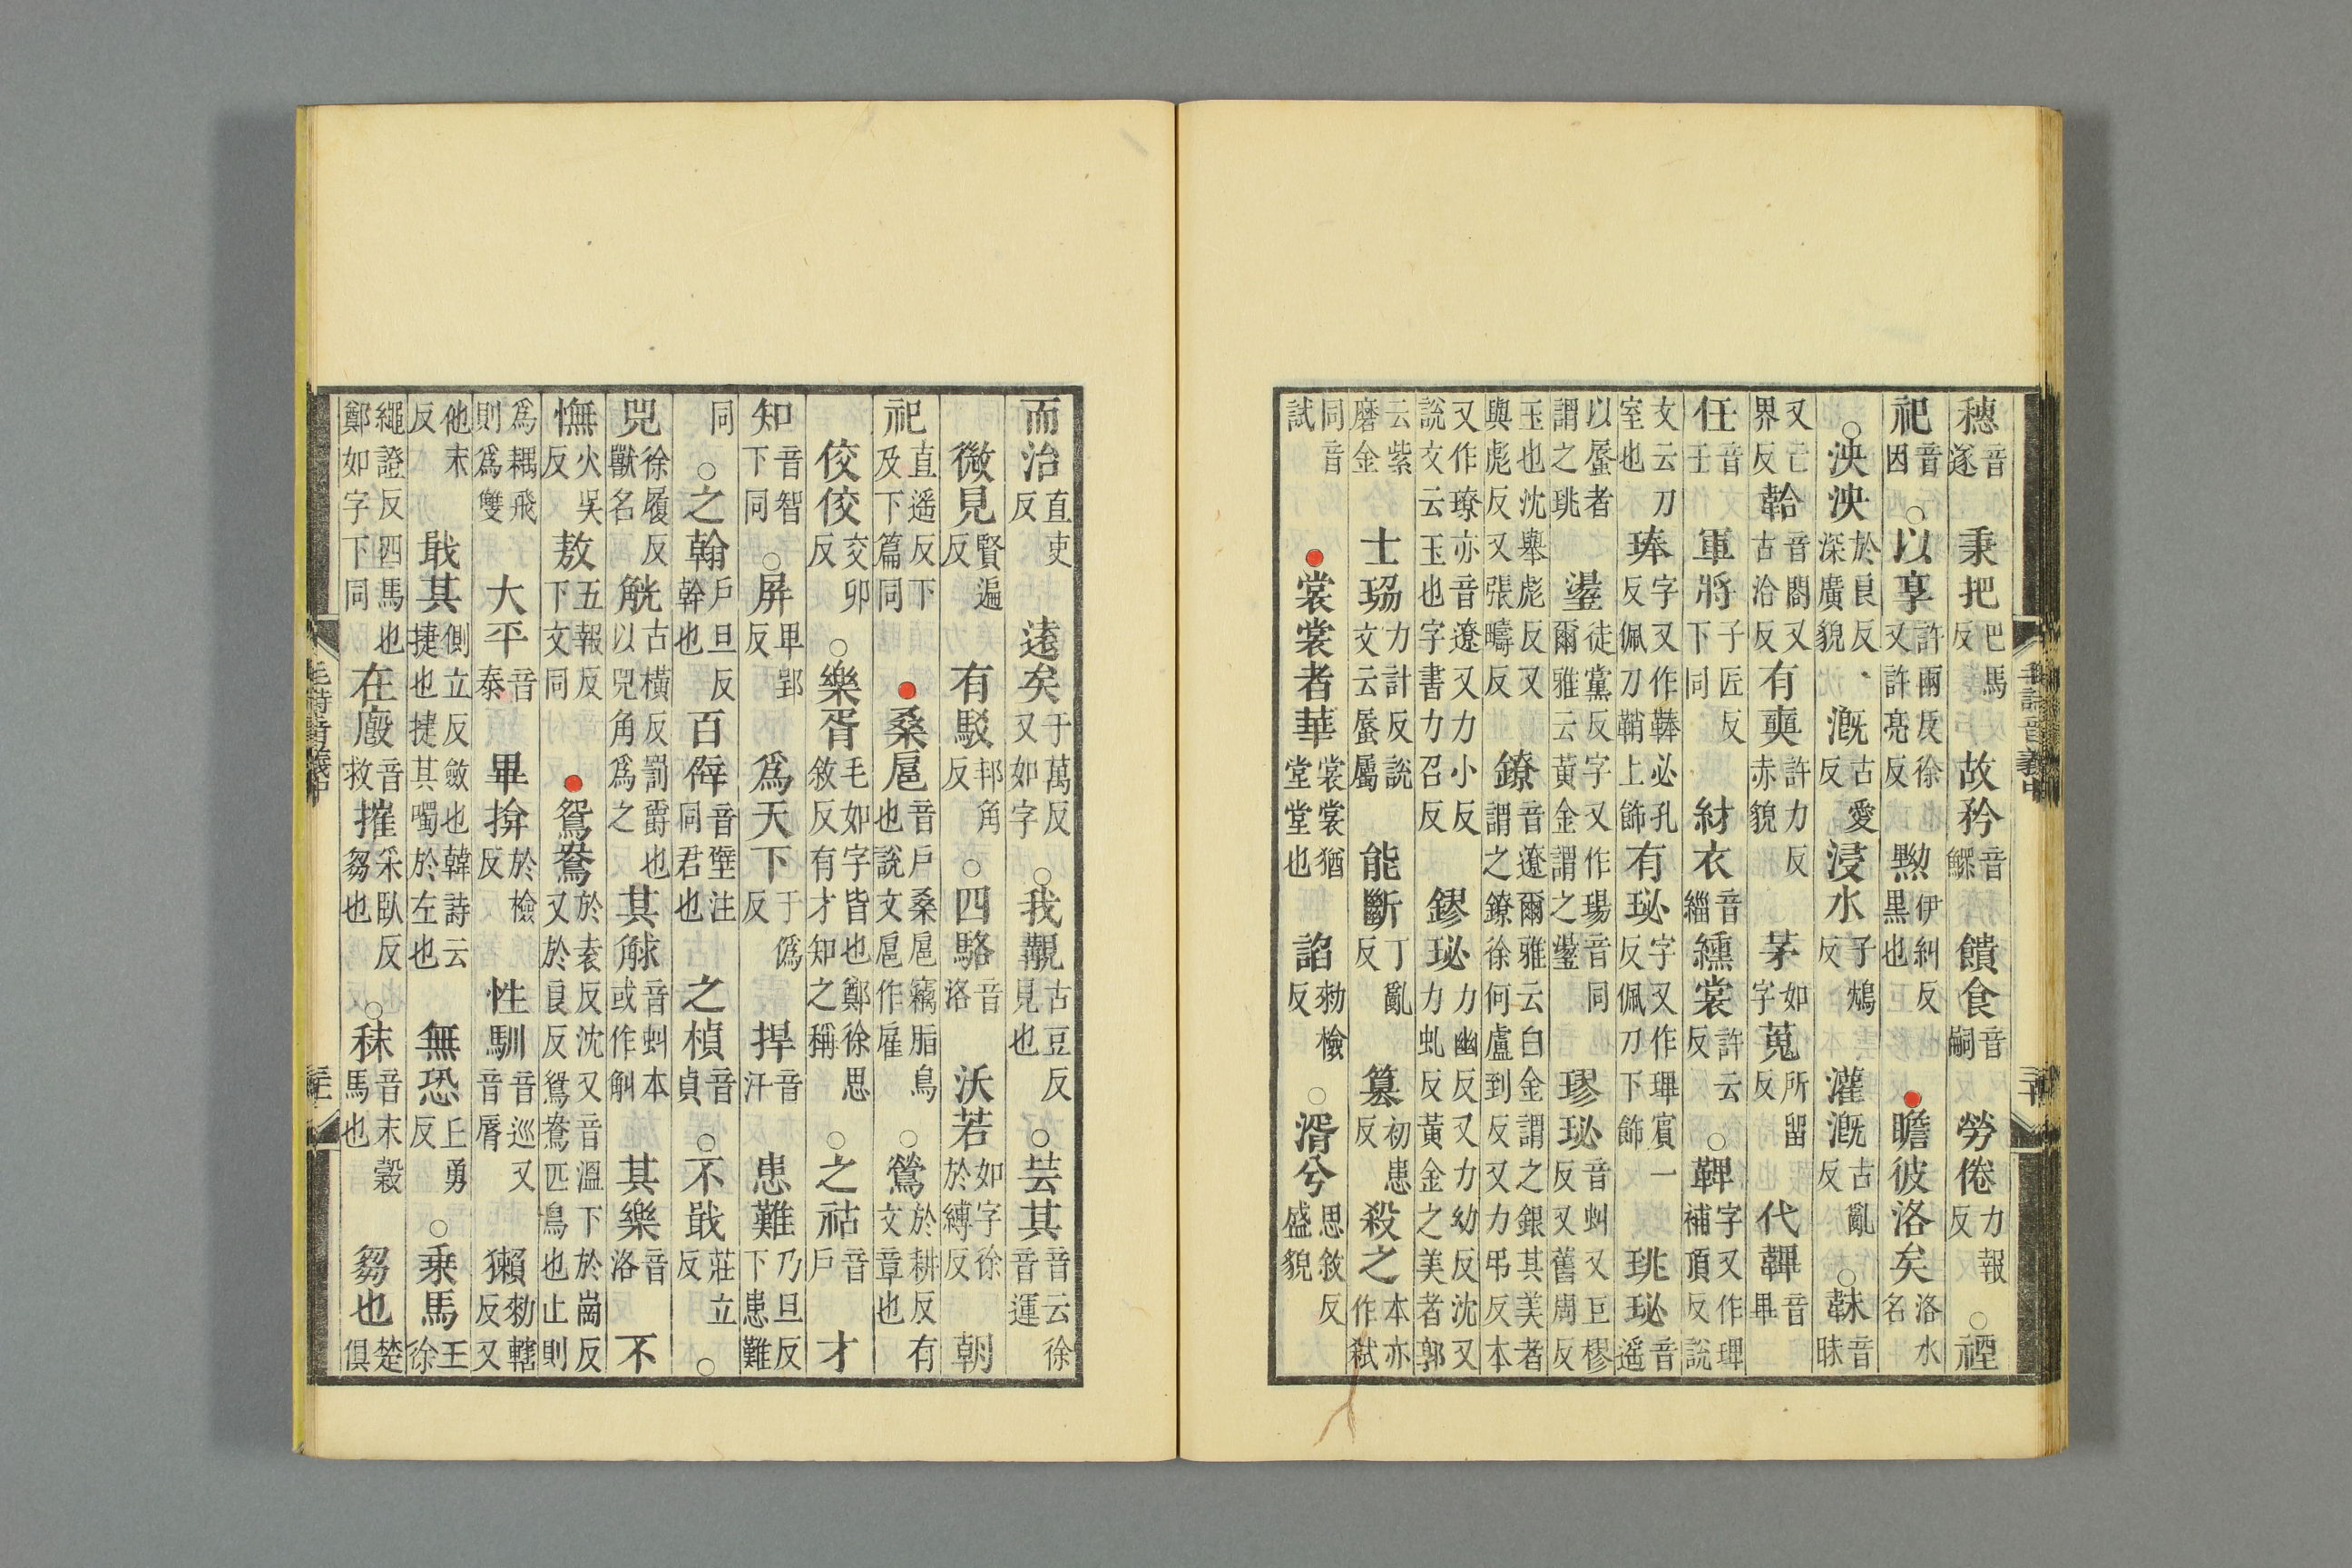 穗音遂秉把巴馬反故矜音鰥饋食音嗣勞倦力報反○禋
祀音因○以享許兩反徐又許亮反黝伊糾反黑也●瞻彼洛矣洛水名
○泱泱於良反深廣貌溉古愛反浸水子鴆反灌溉古亂反○韎音昧
又亡界反韐音閤又古洽反有奭許力反赤貌茅如字蒐所留反代韠音畢
任音壬軍將子匠反下同紂衣音緇纁裳許云反○鞞字又作琕補頂反說
文云刀室也琫字又作鞛必孔反佩刀鞘上飾有珌字又作琕賓一反佩刀下飾珧珌音遥
以蜃者謂之珧璗徒黨反字又作瑒音同爾雅云黃金謂之璗璆珌音虯又巨樛反又舊周反
玉也沈舉彪反又與彪反又張疇反鐐音遼爾雅云白金謂之銀其美者謂之鐐徐何盧到反又力弔反本
又作璙亦音遼又力小反說文云玉也字書力召反鏐珌力幽反又力幼反沈又力虬反黃金之美者郭
云紫磨金士珕力計反說文云蜃屬能斷丁亂反篡初患反殺之本亦作弒
同音試●裳裳者華裳裳猶堂堂也諂勑檢反○湑兮思敘反盛貌
毛詩音義中
而治直吏反遠矣于萬反又如字○我覯古豆反見也○芸其音云徐音運
微見賢遍反有駁邦角反○四駱音洛沃若如字徐於縛反朝
祀直遥反下及下篇同●桑扈音戶桑扈竊脂鳥也說文扈作雇○鶯於耕反有文章也
佼佼交卯反○樂胥毛如字皆也鄭徐思敘反有才知之稱○之祜音戶才
知音智下同○屏卑郢反爲天下于僞反捍音汗患難乃旦反下患難
同○之翰戶旦反幹也百辟音壁注同君也之楨音貞○不戢莊立反○
兕徐履反獸名觥古橫反罰爵也以兕角爲之其觩音虯本或作觓其樂音洛不
憮火吳反敖五報反下文同●鴛鴦於袁反沈又音溫下於崗反又於良反鴛鴦匹鳥也止則
爲耦飛則爲雙大平音泰畢揜於檢反性馴音巡又音脣獺勑轄反又
他末反戢其側立反斂也韓詩云捷也捷其噣於左也無恐丘勇反○乗馬王徐
繩證反四馬也鄭如字下同在廄音救摧采臥反芻也○秣音末穀馬也芻也楚俱
毛詩音義中